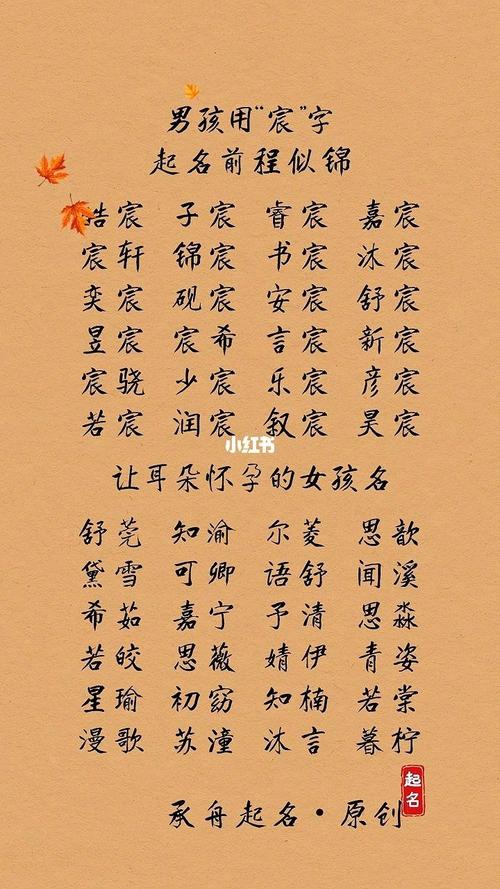 男孩用“宸”字
起名前程似锦
皓宸 子宸 睿宸 嘉宸
宸轩 锦宸 书宸 沐宸
奕宸 砚宸 安宸 舒宸
昱宸 宸希 言宸 新宸
宸骁 少宸 乐宸 彦宸
若宸 润宸 叙宸 昊宸
小红书
让耳朵怀孕的女孩名
舒莞 知渝 尔菱 思歆
黛雪 可卿 语舒 闻溪
希茹 嘉宁 予清 思淼
若皎 思薇 婧伊 青姿
星瑜 初窈 知楠 若棠
漫歌 苏潼 沐言 暮柠
起名
承舟起名·原创